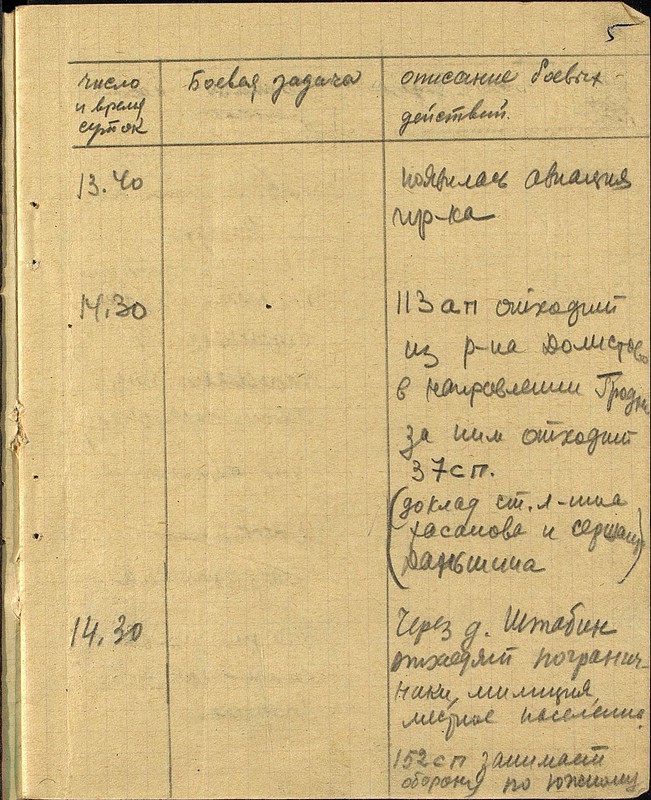 5
число
и время
суток
Боевая задача
описание боевых
действий.
13.40
появилась авиация
пр-ка
14.30
113 ап отходит
из р-на Долистово
в направлении Гродн
за ним отходит
37 сп.
(доклад ст. л-нта
Хасанова и сержант
Даньшина)
14.30
Через д. Штабин
отходят погранич-
ники, милиция,
местное население.
152 сп занимает
оборону по южному